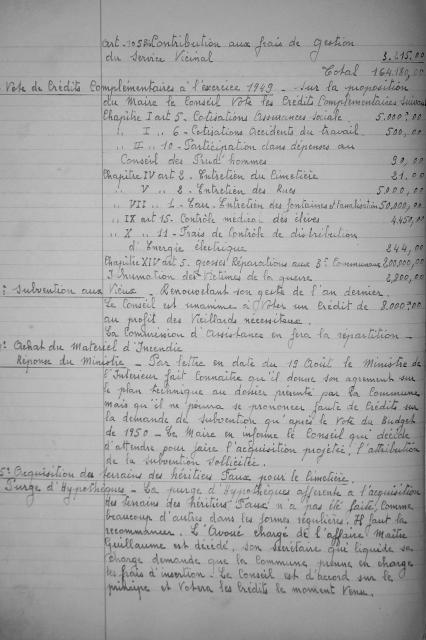 art. 1058 Contribution aux frais de gestion
du Service Vicinal 3.215,00
Total 164.180,00
Vote de Crédits Complémentaires à l'exercice 1949 _ Sur la proposition
du Maire le Conseil Vote les Crédits Complémentaires suivants
Chapitre I art 5. Cotisations Assurances sociale. 5.000,00
" I " 6 - Cotisations Accidents du travail. 500,00
" II " 10 - Participation dans dépenses au
Conseil des Prud'hommes 90,00
Chapitre IV art 2. Entretien du Cimetière 21.00
" V " 2. Entretien des Rues 5.000,00
" VII " 1. Eau. Entretien des fontaines et canalisation 50,000,00
" IX art 15. Contrôle médical des élèves 4.450,00
" X " 11 - Frais de Contrôle de distribution
d'Energie électrique 244,00
Chapitre XIV art 5. Grosses Réparations aux Bts Communaux 200,000,00
Inhumation des Victimes de la guerre 2,200,00
Subvention aux Vieux _ Renouvelant son geste de l'an dernier.
Le Conseil est unanime à Voter un Crédit de 2.000,00
au profit des Vieillards nécessiteux.
La Commission d'Assistance en fera la répartition _
Achat du Matériel d'Incendie
Réponse du Ministre _ Par lettre en date du 19 Août le Ministre de
l'Intérieur fait Connaître qu'il donne son agrément sur
le plan technique au dossier présenté par la Commune
mais qu'il ne pourra se prononcer faute de Crédits sur
la demande de subvention qu'après le Vote du Budget
de 1950 _ Le Maire en informe le Conseil que décide
d'attendre pour faire l'acquisition projetée, l'attribution
de la subvention sollicitée.
5° Acquisition des terrains des héritiers Faux pour le Cimetière.
Purge d'Hypothèques _ La purge d'Hypothèques afférente à l'acquisition
des terrains des héritiers Faux n'a pas été faite, Comme
beaucoup d'autres dans les formes régulières. Il faut la
recommencer. L'Avoué chargé de l'affaire Maître
Guillaume est décidé, son Secrétaire qui liquide sa
charge demande que la Commune prenne en charge
les frais d'insertion. Le Conseil est d'accord sur le
principe et Votera les Crédits le moment Venu.